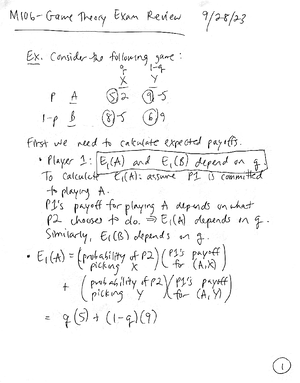 M106-Game Theory Exam Review 9/28/23
Ex. Consider the following game:
q 1-q
X Y
P A (5)2 (9)-5
1-p B (8)-5 (6)9
First we need to calculate expected payoffs.
• Player 1: E₁(A) and E₁(B) depend on q.
To calculate E₁(A): assume P1 is committed
to playing A.
P1's payoff for playing A depends on what
P2 chooses to do. ⇒ E₁(A) depends on q.
Similarly, E₁(B) depends on q.
• E₁(A) = (probability of P2 picking X)(P1's payoff for (A,X))
+ (probability of P2 picking Y)(P1's payoff for (A,Y))
= q(5) + (1-q)(9)
1